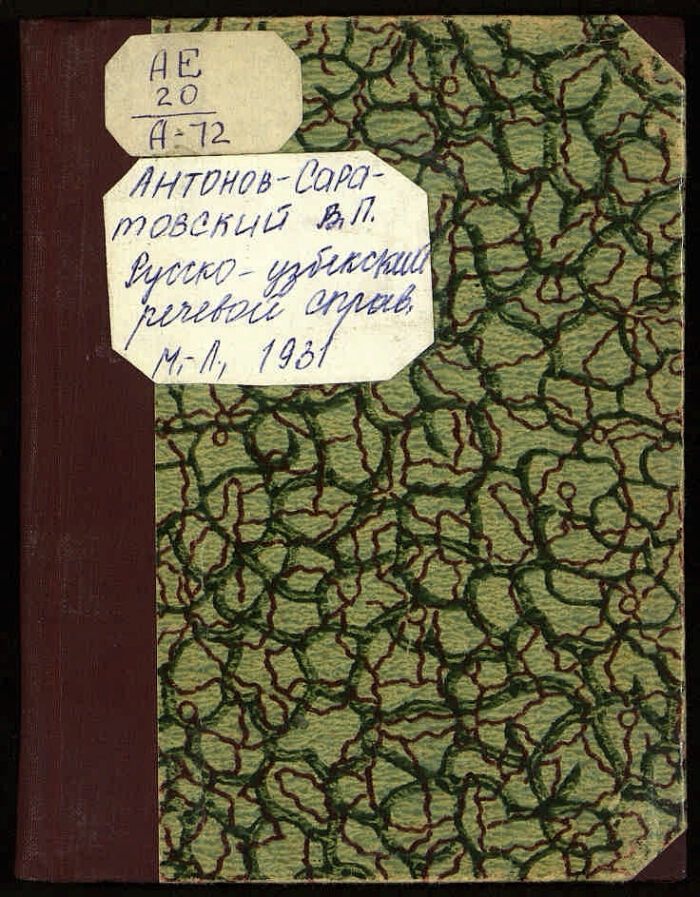 АЕ
20
А-72
Антонов-Сара-
товский В.П.
Русско-узбекский
речевой справ.
М.-Л., 1931